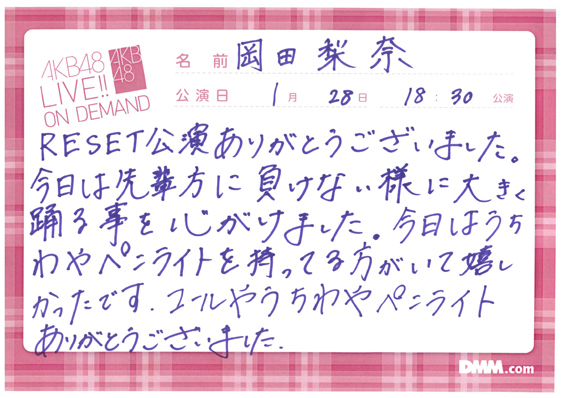 AKB48
LIVE!!
ON DEMAND
AKB
48
名前 岡田梨奈
公演日 1月 28日 18:30 公演
RESET公演ありがとうございました。
今日は先輩方に負けない様に大きく
踊る事を心がけました。今日はうち
わやペンライトを持ってる方がいて嬉し
かったです.コールやうちわやペンライト
ありがとうございました.
DMM.com